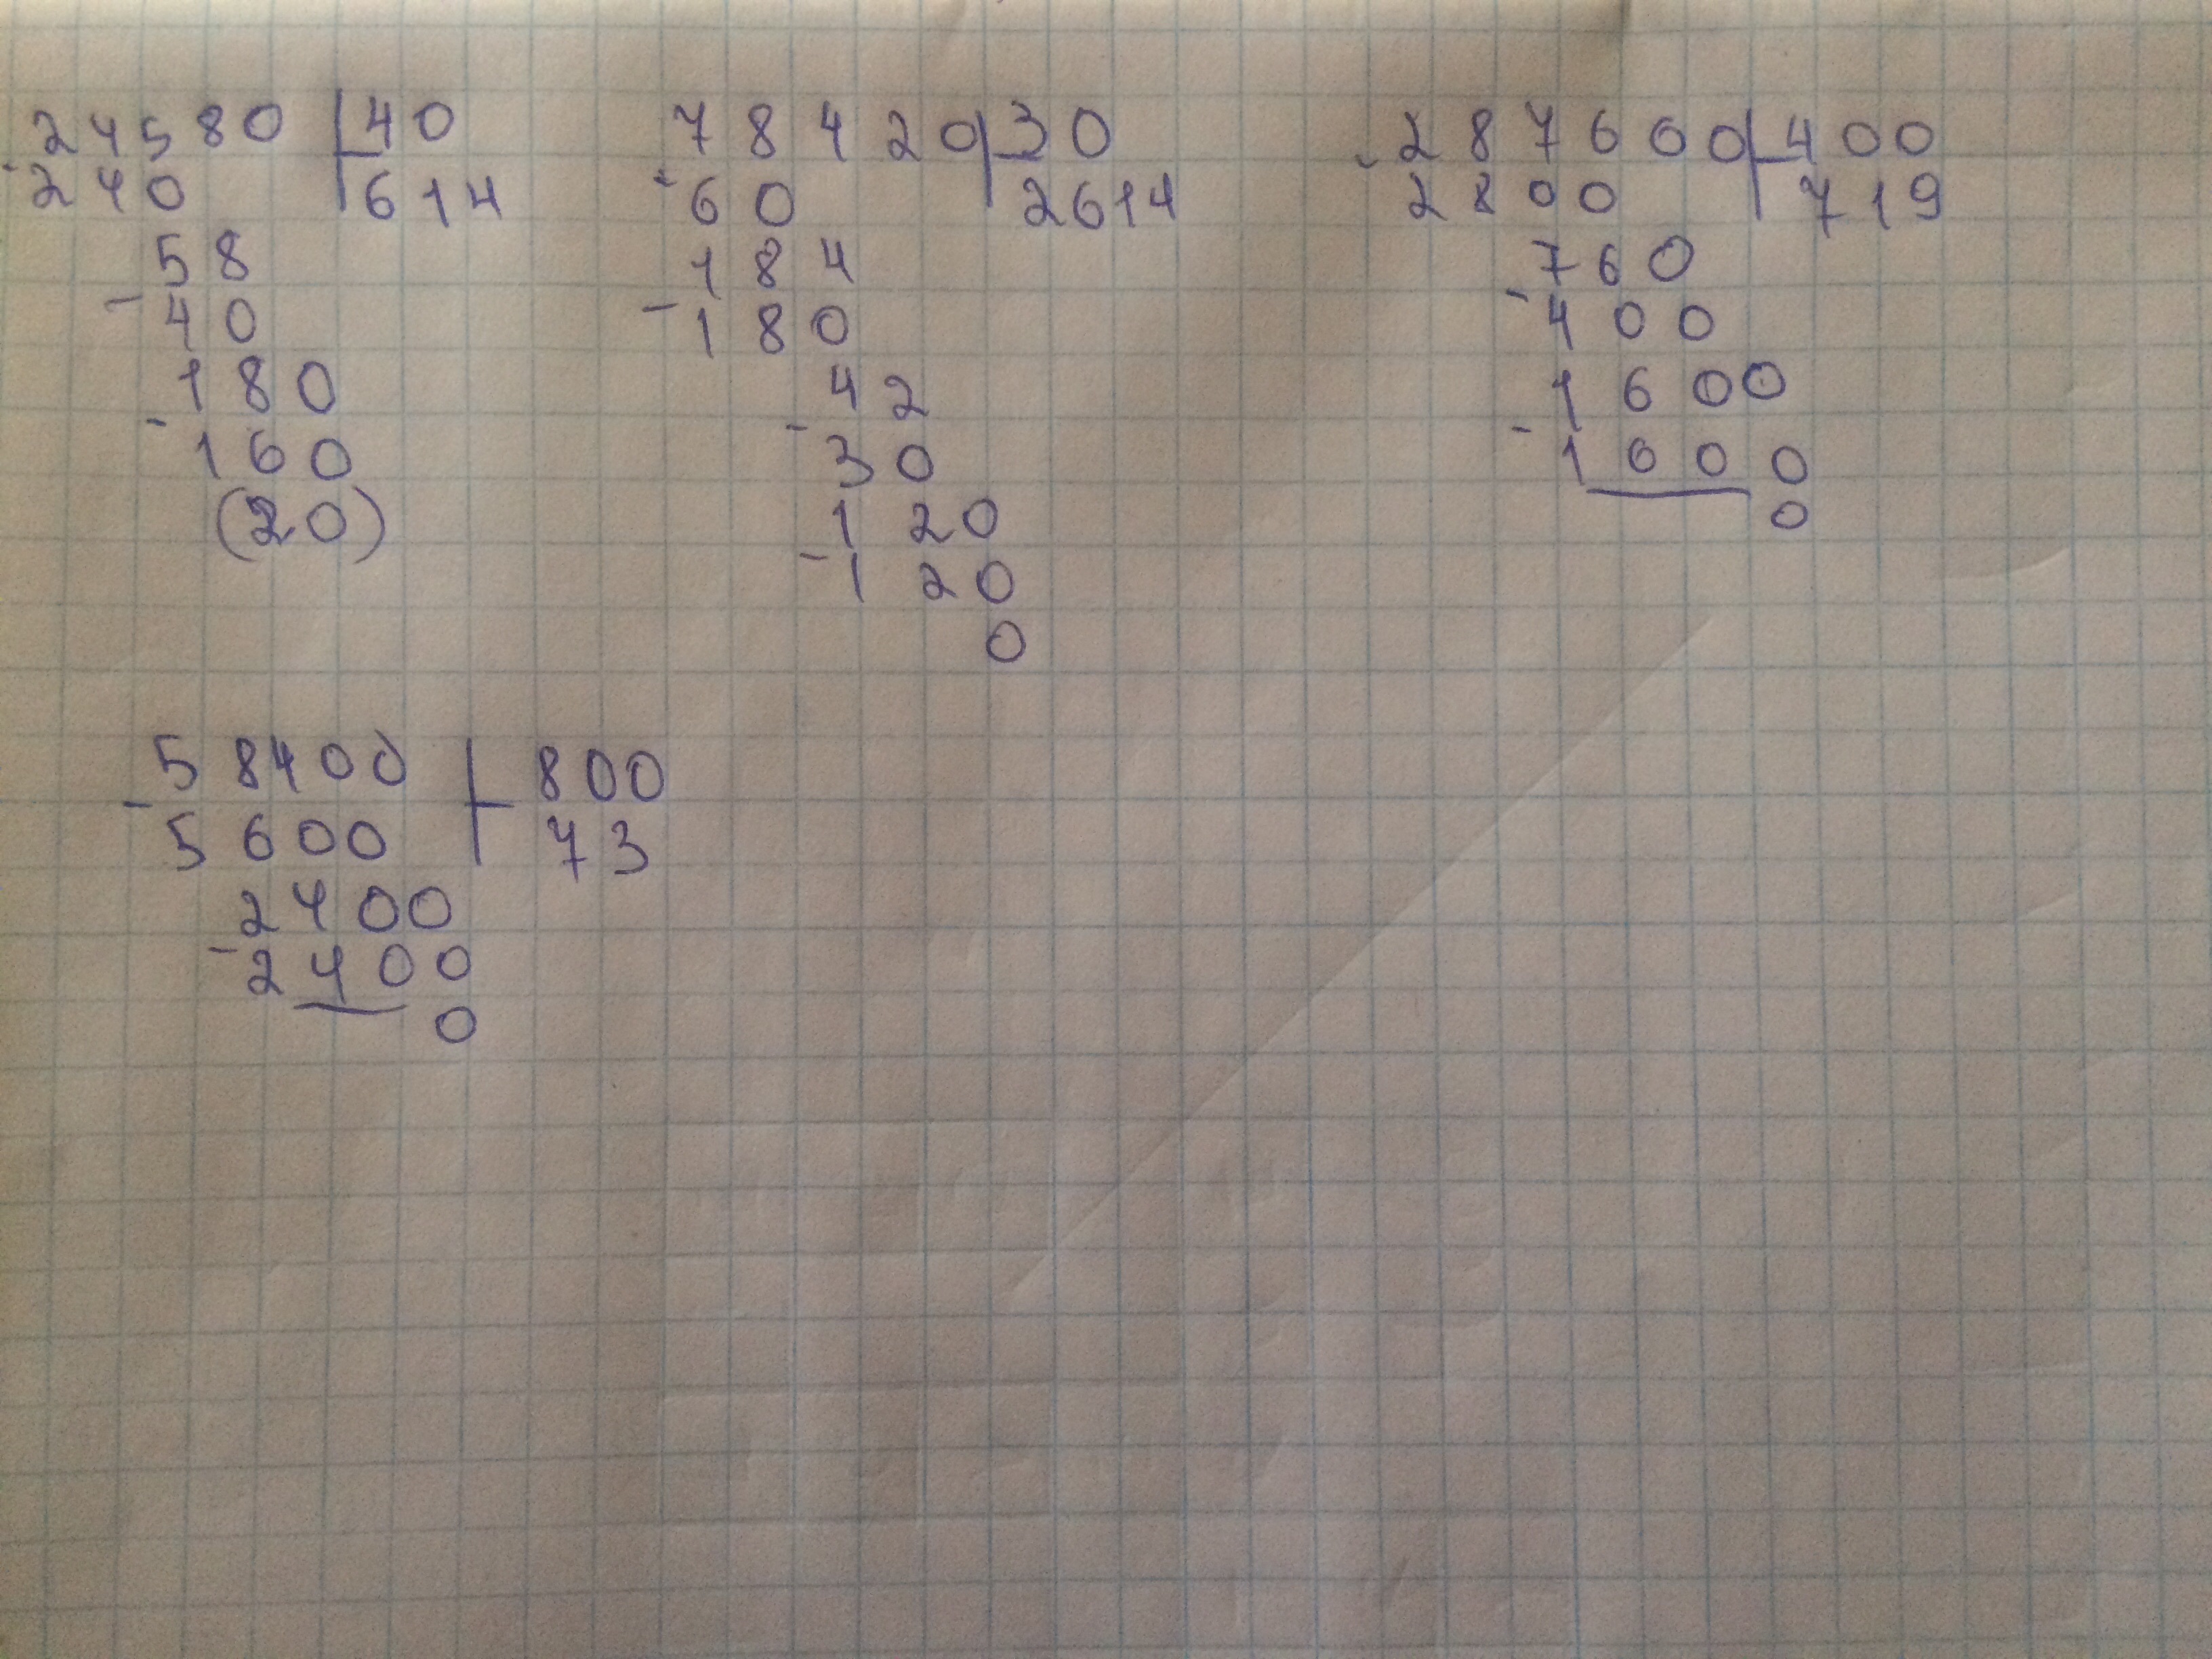 -24580 | 40
240 | 614
58
-40
180
-160
(20)
78420 | 30
-60 | 2614
184
-180
42
-30
120
-120
0
-287600 | 400
2800 | 719
760
-400
1600
-1000
0
58400 | 800
-5600 | 73
2400
-2400
0